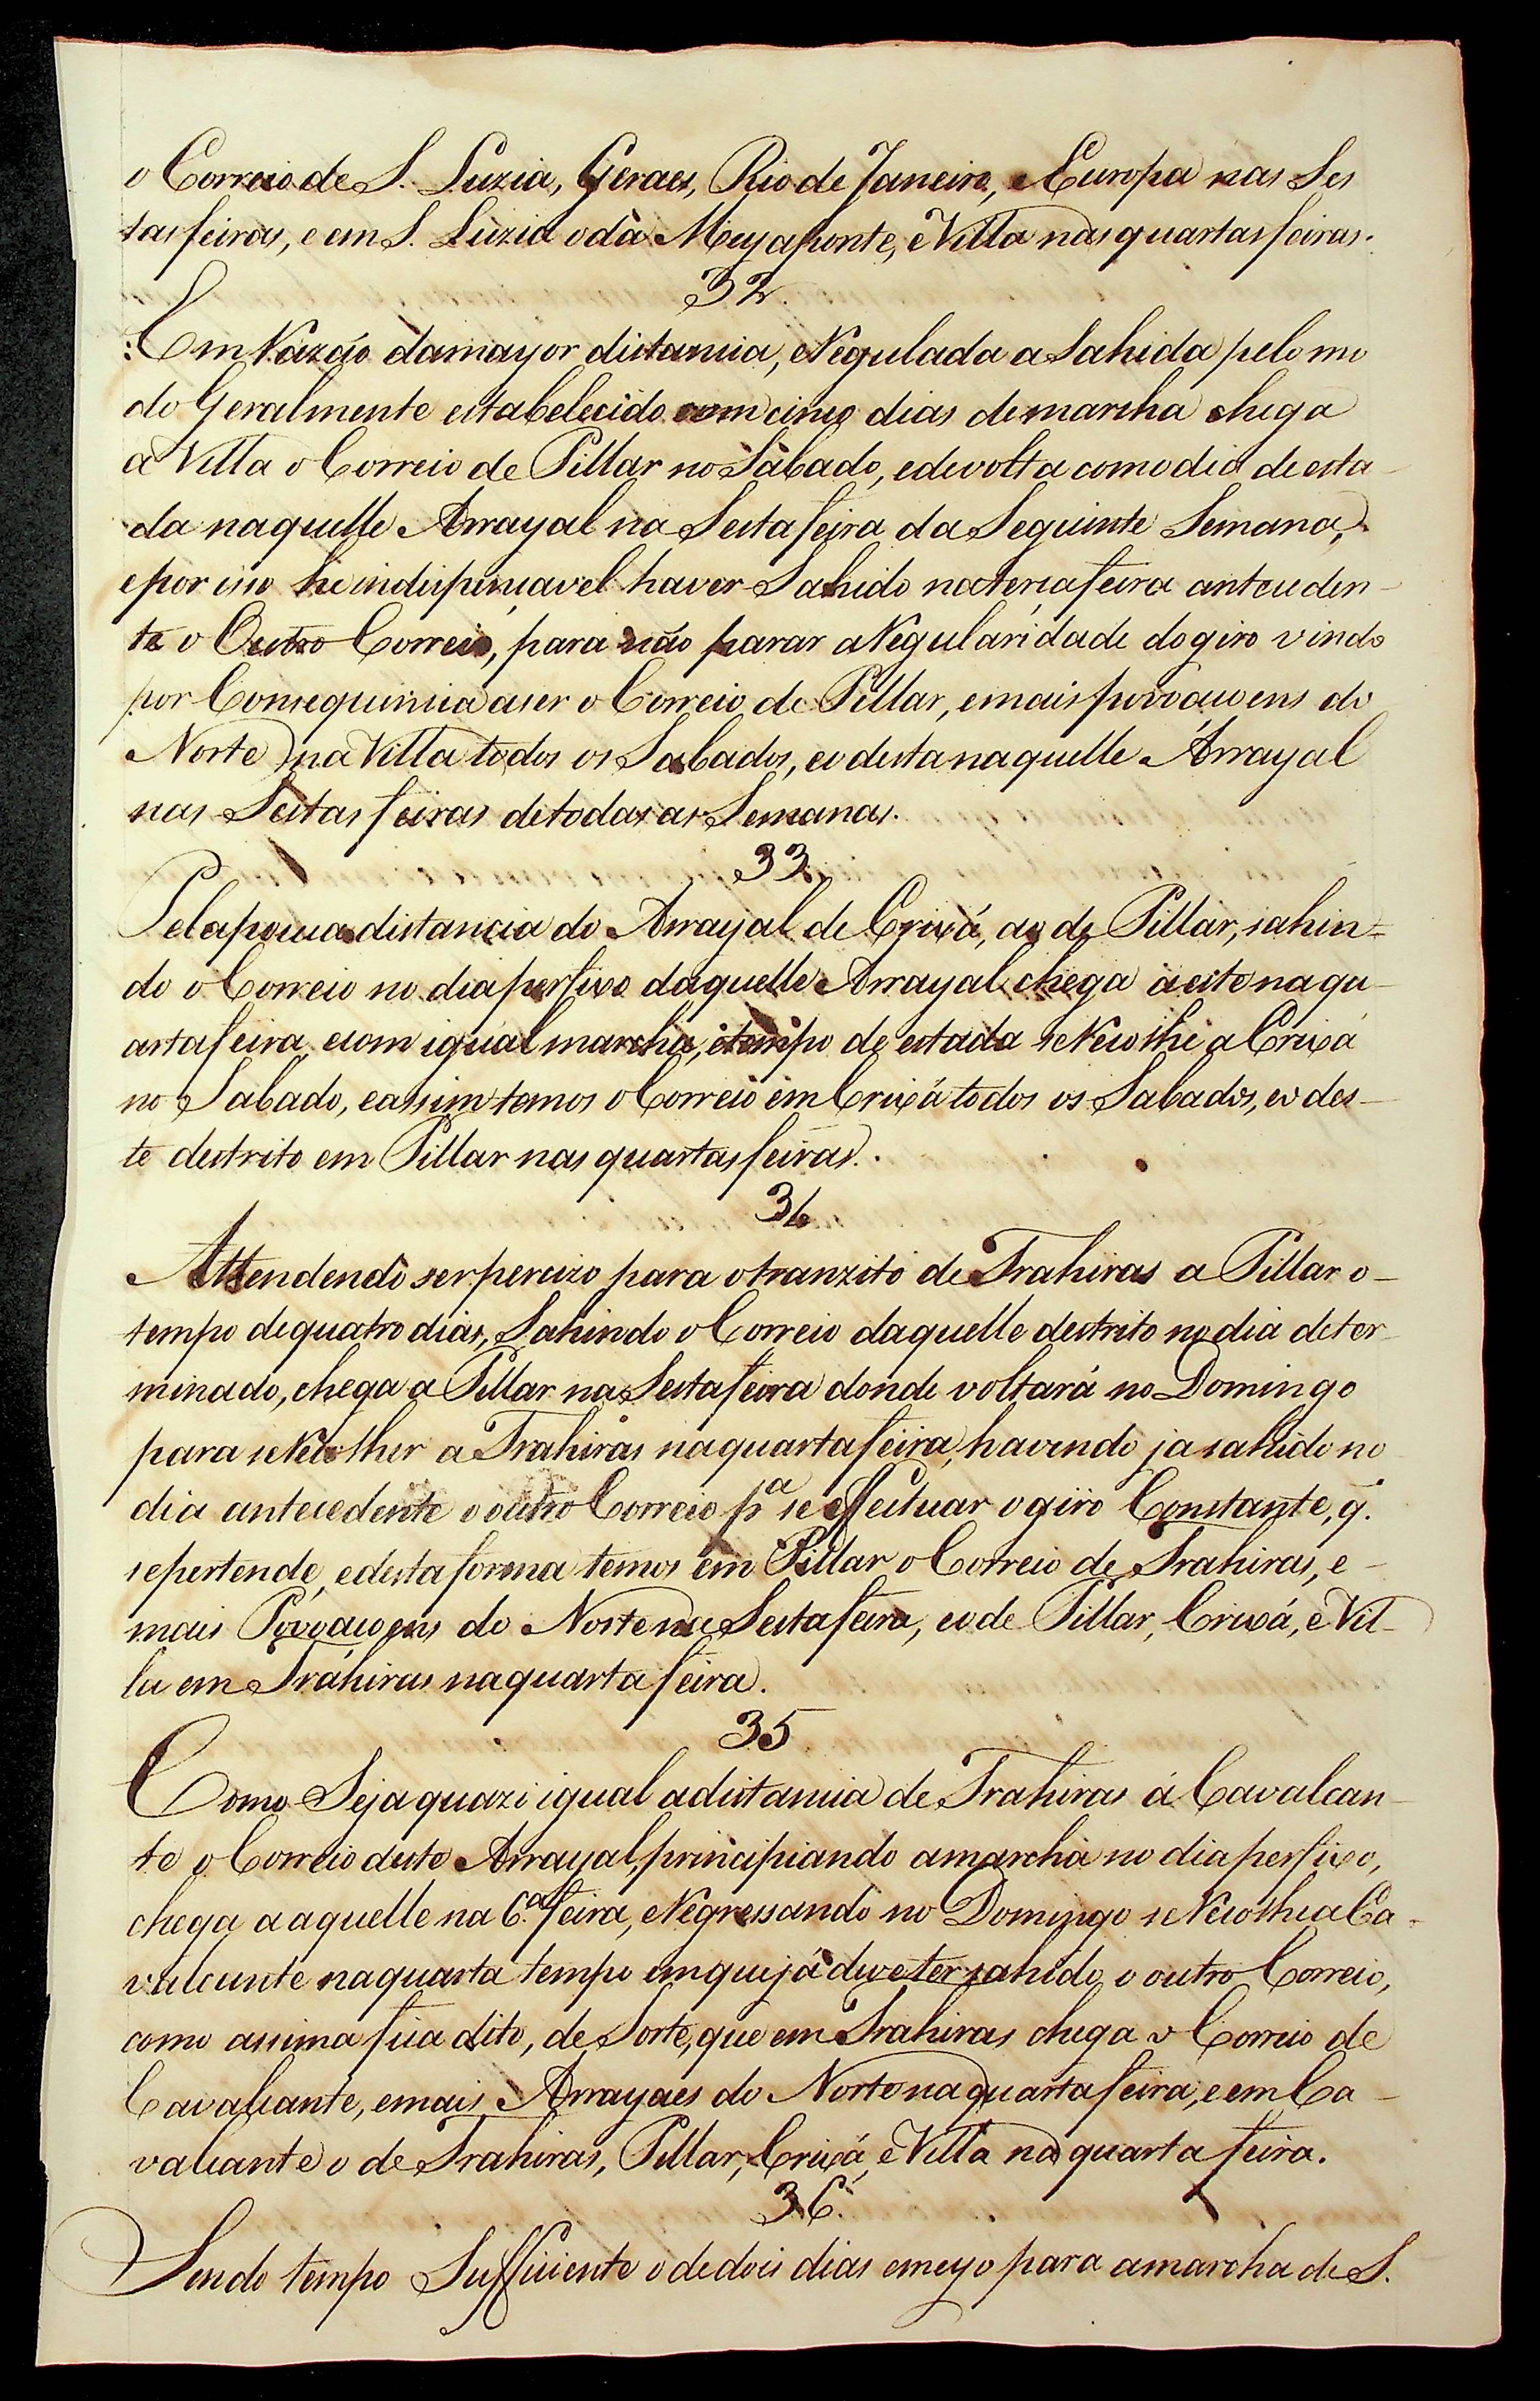 o Correio de S. Luzia, Geraes, Rio de Janeiro, e Europa nas Ses
tas feiras, e em S. Luzia o da Meyaponte, e Villa nas quartas feiras.
32.
Em Razão da mayor distancia, e Regulada a Sahida pelo mo
do Geralmente estabelecido com cinco dias de marcha chega
a Villa o Correio de Pillar no Sabado, e de volta com o dia de esta-
da naquelle Arrayal na Sesta feira da Seguinte Semana,
e por isso he indispensavel haver Sahido na terça feira anteceden-
te o Outro Correio, para não parar a Regularidade do giro vindo
por Consequencia a ser o Correio de Pillar, e mais povoaçoens do
Norte na Villa todos os Sabados, e o desta naquelle Arrayal
nas Sestas feiras de todas as Semanas.
33.
Pela pouca distancia do Arrayal de Crixá, ao de Pillar, sahin=
do o Correio no dia perfixo daquelle Arrayal chega a este na qu-
arta feira, e com igual marcha, e tempo de estada se Recolhe a Crixá
no Sabado, e assim temos o Correio em Crixá todos os Sabados, e o des-
te destrito em Pillar nas quartas feiras.
34
Attendendo ser percizo para o tranzito de Trahiras a Pillar o-
tempo de quatro dias, Sahindo o Correio daquelle destrito no dia deter-
minado, chega a Pillar na Sesta feira donde voltará no Domingo
para se Recolher a Trahiras na quarta feira, havendo ja sahido no
dia antecedente o outro Correio pa se effectuar o giro Constante, q.
se pertende, e desta forma temos em Pillar o Correio de Trahiras, e-
mais Povoaçoens do Norte na Sesta feira, e o de Pillar, Crixá, e Vil-
la em Trahiras na quarta feira.
35
Como Seja quazi igual a distancia de Trahiras á Cavalcan-
te o Correio deste Arrayal, principiando a marcha no dia perfixo,
chega a aquelle na 6.a feira, e Regressando no Domingo se Recolhe a Ca-
valcante na quarta tempo em que já deve ter sahido o outro Correio,
como assima fica dito, de Sorte, que em Trahiras chega o Correio de
Cavalcante, e mais Arrayaes do Norte na quarta feira, e em Ca-
valcante o de Trahiras, Pillar, Crixá, e Villa na quarta feira.
36.
Sendo tempo Sufficiente o de dois dias e meyo para a marcha de S.